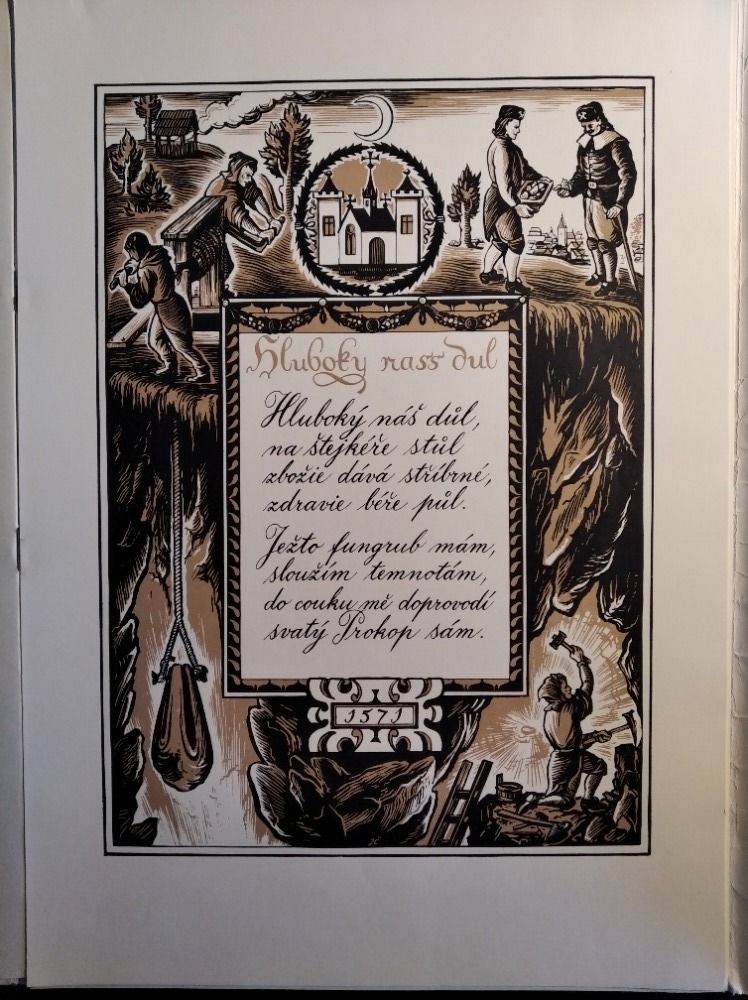 Hluboky nass dul
Hluboký náš důl,
na štejkéře stůl
zbožie dává stříbrné,
zdravie béře půl.
Ježto fungrub mám,
sloužím temnotám,
do couku mě doprovodí
svatý Prokop sám.
1571